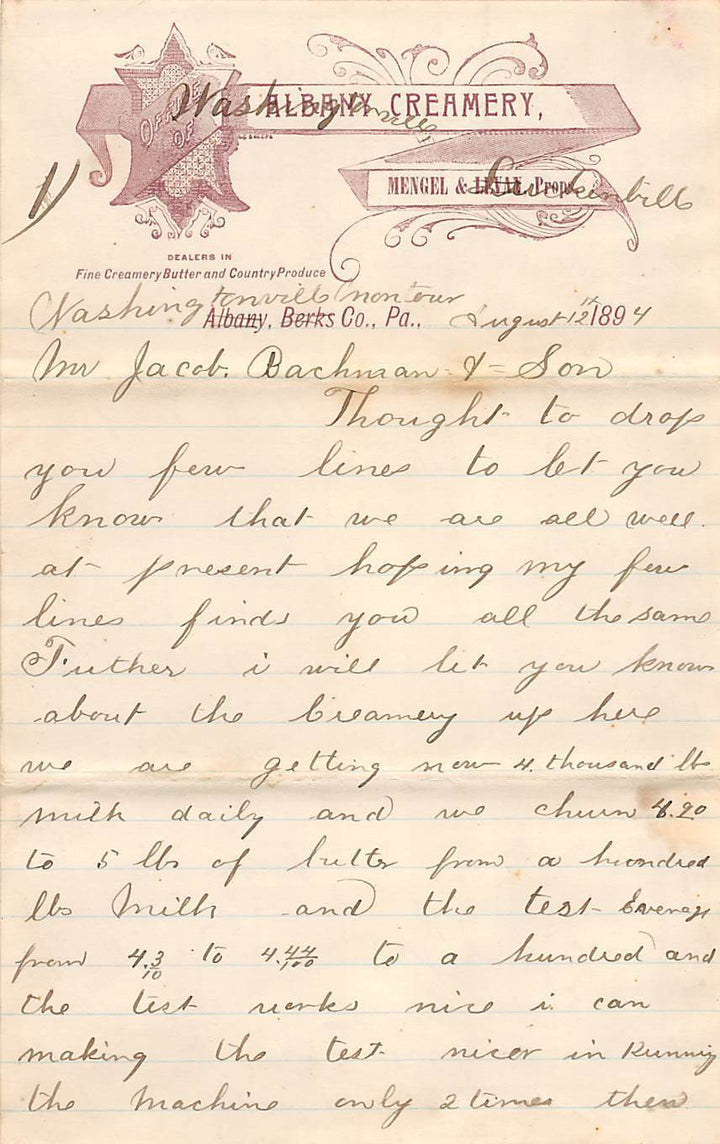 OFFICE OF
Washingtonville
ALBANY CREAMERY,
1)
MENGEL & LEVAN, Props.
DEALERS IN
Fine Creamery Butter and Country Produce
Washingtonvill montour
Albany, Berks Co., Pa., August 12th 1894
Mr Jacob. Bachman & Son
Thought to drop
you few lines to let you
know that we are all well.
at present hoping my few
lines finds you all the same
Futher i will let you know
about the Creamery up here
we are getting now 4 thousand lbs
milk daily and we churn 4.90
to 5 lbs of butter from a hundred
lbs Milk and the test Everage
from 4.3/10 to 4.44/100 to a hundred and
the test works nice i can
making the test nicer in Running
the Machine only 2 times then